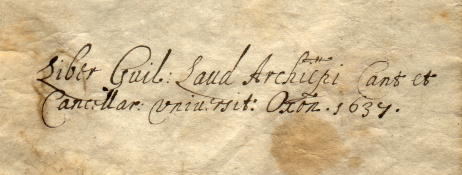 Liber Guil: Laud Archiepi Cant et
Cancellar: Vniversit: Oxon. 1637.